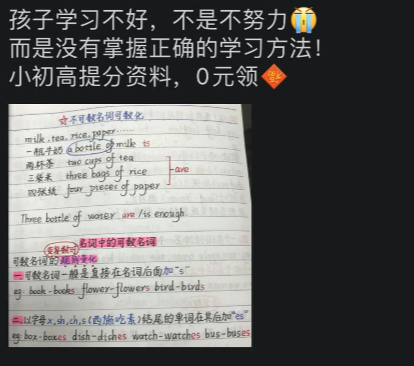 孩子学习不好，不是不努力😭
而是没有掌握正确的学习方法！
小初高提分资料，0元领🧧
☆不可数名词可数化
milk, tea, rice, paper ......
一瓶牛奶 a bottle of milk is
两杯茶 two cups of tea
三袋米 three bags of rice
四张纸 four pieces of paper
are
Three bottle of water are/is enough.
名词中的可数名词
可数名词的规则变化
一.可数名词一般是直接在名词后面加"s"
eg: book-books flower-flowers bird-birds
二.以字母x,sh,ch,s(西施吃素)结尾的单词在其后加"es"
eg: box-boxes dish-dishes watch-watches bus-buses